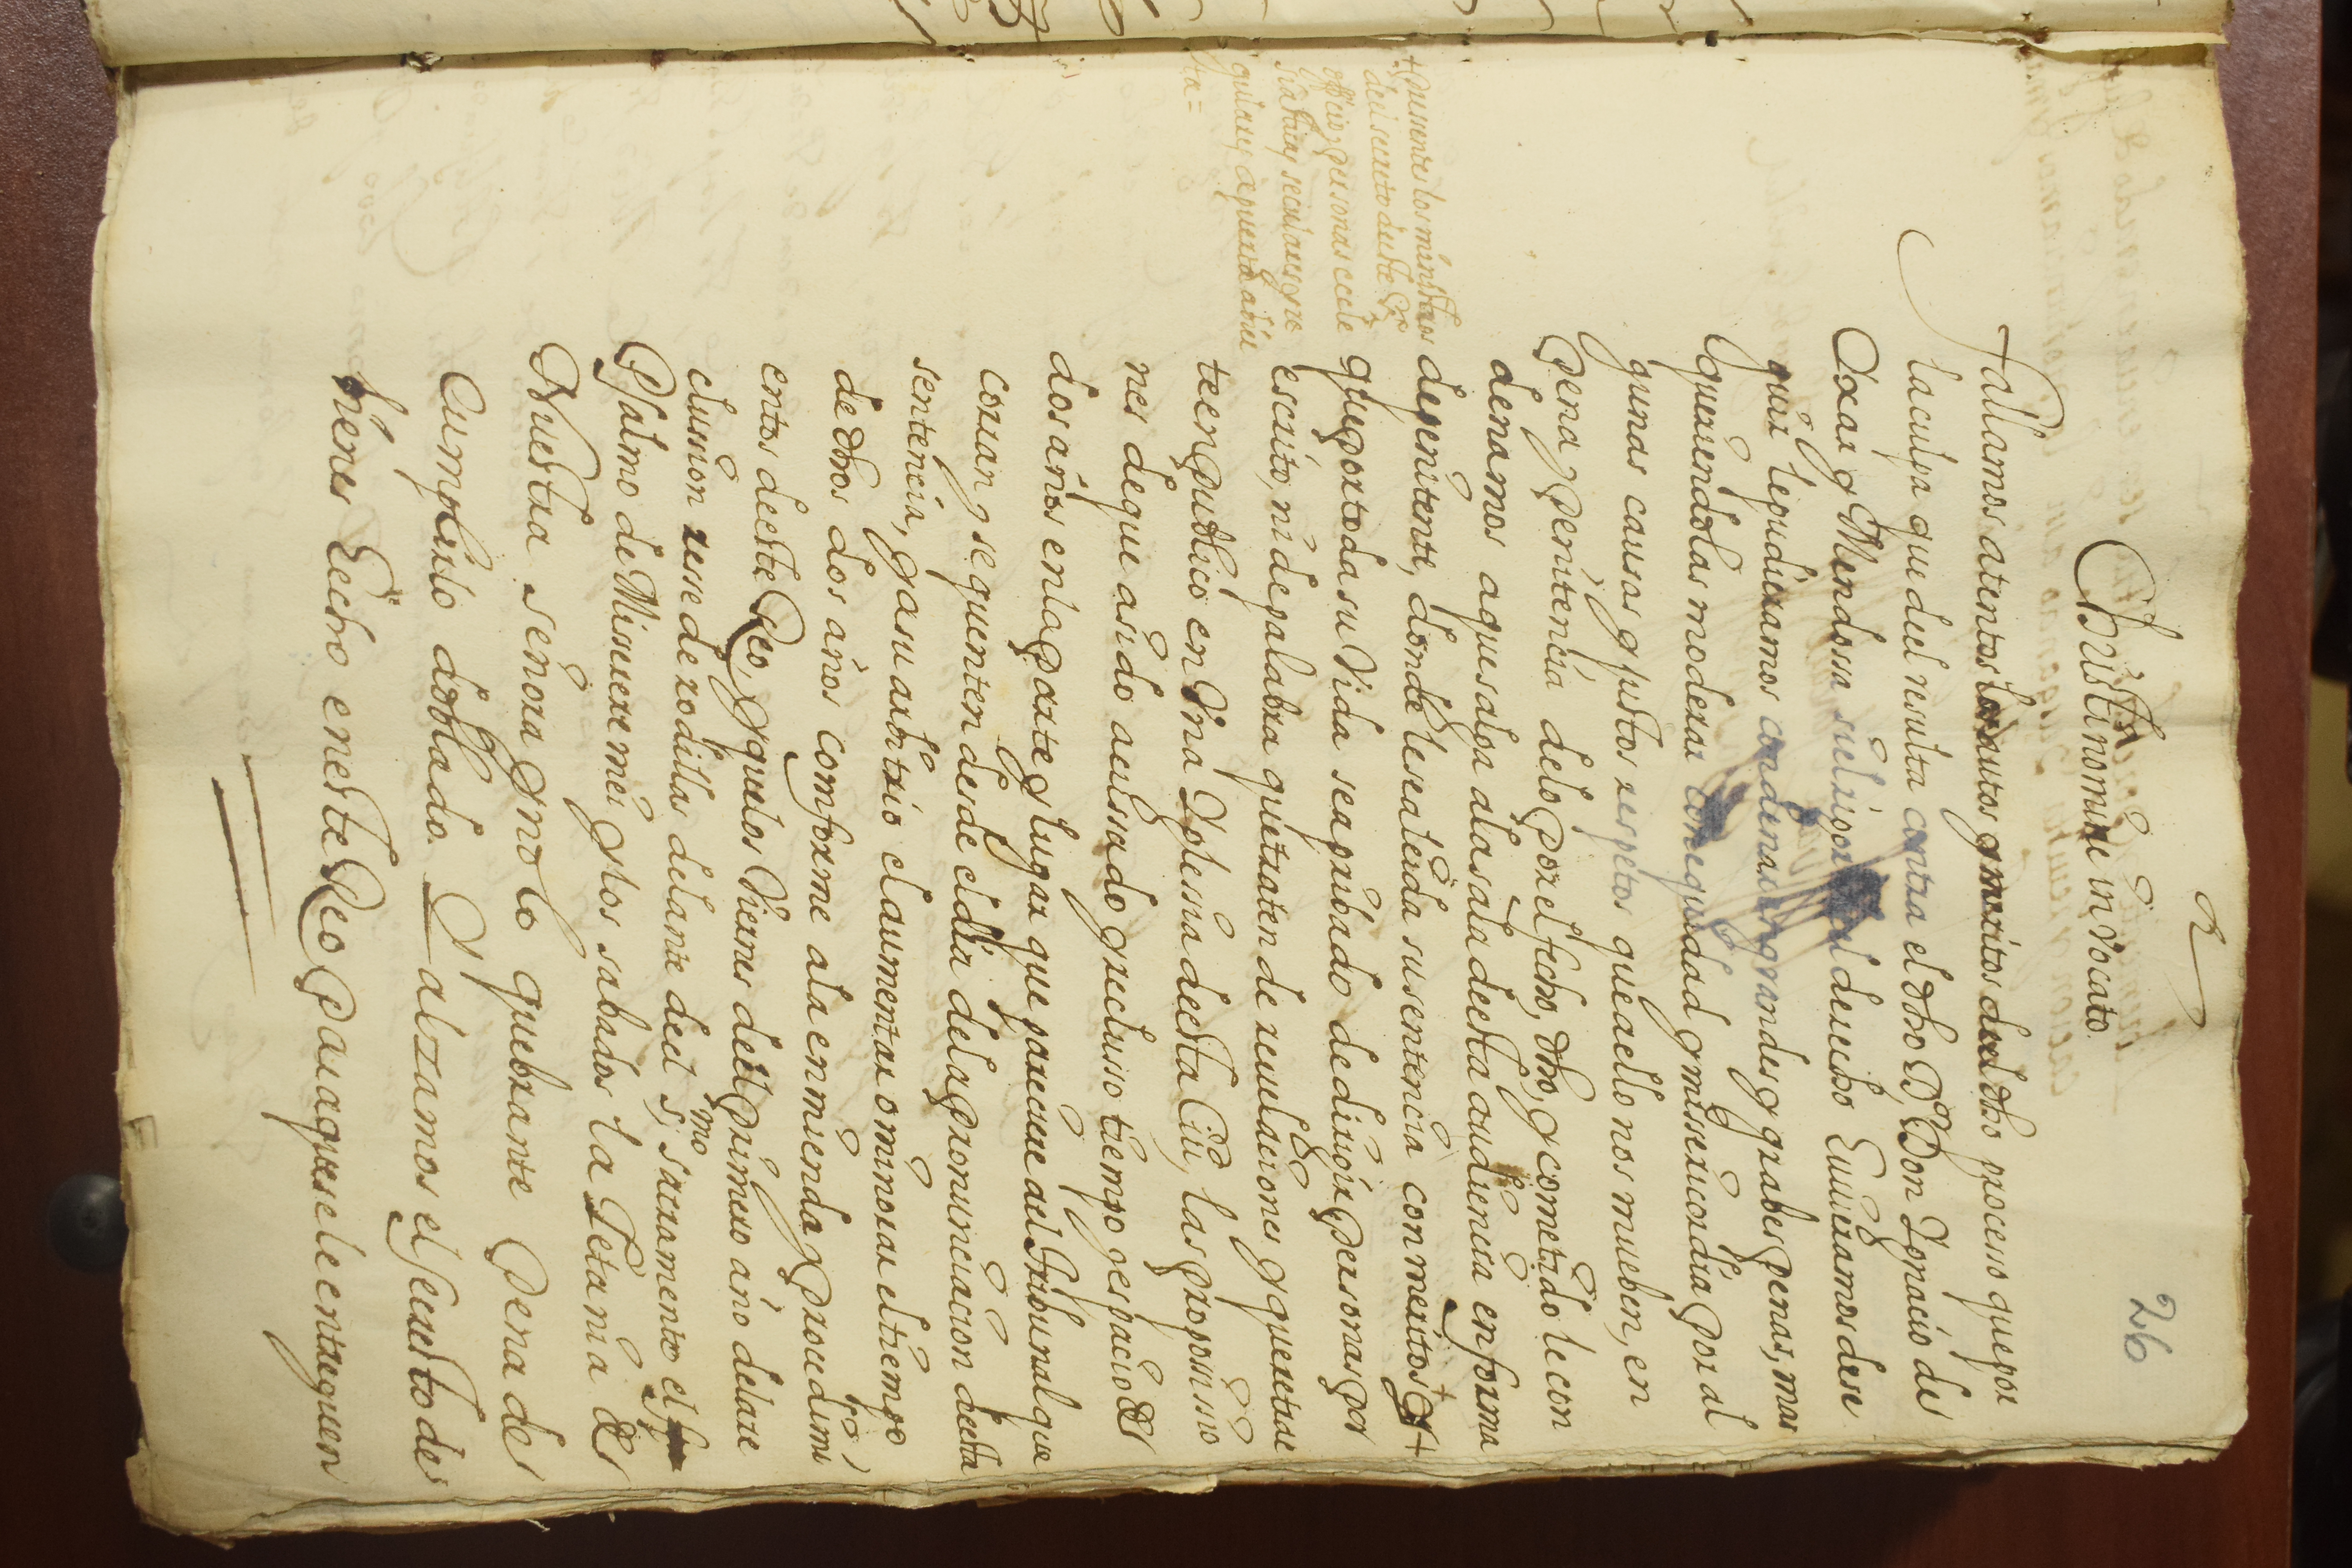 26
Christi nomine invocato
Fallamos atentos los autos y meritos deel dho proceso que por
la culpa que del resulta contra el dho Dr. Don Ignacio de
Toxar y Mendossa si el rigor del derecho huvieramos de se
guir le pudieramos condenar en grandes y grabes penas, mas
queriendolas moderar con equidad y missericordia por al
gunas causas y justos respetos que a ello nos mueben, en
pena y penitencia de lo por el fecho, dho, y cometido le con
denamos a que salga a la sala de esta audiencia en forma
de penitente, donde le sea leida su sentencia con meritos +
y que por toda su vida sea pribado de dirigir personas por
escrito, ni de palabra que traten de revelaciones y que se trae
te en publico en una Iglesia de esta Ciu.d las proposicio
nes de que a sido acussado y recluso tiempo y espacio de
dos años en la parte y lugar que pareciere al Tribunal que
corran y se quenten desde el dia de la pronunciacion de esta
sentencia, y a su arbitrio el aumentar o minorar el tiempo
de dhos dos años comforme a la enmienda y procedimi
entos de este Reo, y que los Viernes deel primero año de la re
clussion resse de rodillas delante deel S.mo sacramento el
Psalmo de Misserere mei y los sabados la Letania de
Nuestra señora y no lo quebrante pena de
cumplirlo doblado. Y alzamos el secresto de
bienes hecho en este Reo para que se le entreguen
+ presentes los ministros
deel secreto de este S.to
officio, y personas eccle
siasticas y seculares, y re
gulares, a puerta abier
ta =